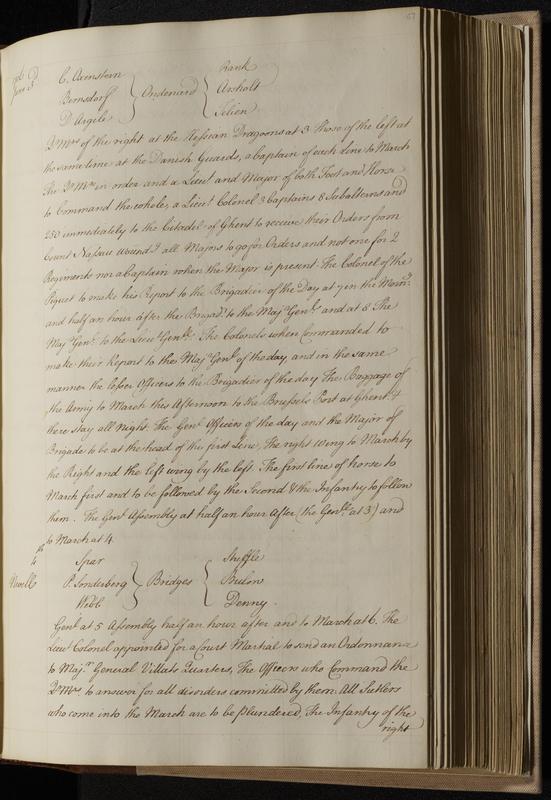 57
June 3d
C. Oxenstern Frank
Bernsdorf } Ondenard { Arsholt
D'Argile Selien
Qr Mrs of the right at the Hessian Dragoons at 3. Those of the left at
the same time at the Danish Guards, a Captain of each Line to March
the Qr Mrs in order and a Lieut and Major of both Foot and Horse
to Command the whole, a Lieut Colonel 3 Captains 8 Subalterns and
250 immediately to the Citadel of Ghent to receive their Orders from
Count Nassau All Majors to go for Orders and not one for 2
Regiments nor a Captain when the Major is present. The Colonel of the
Piquet to make his Report to the Brigadier of the Day at 7 in the Morng
and half an hour after the Brigadr to the Majr Genl and at 8 The
Majr Genl to the Lieut Genll. The Colonels when Commanded to
make their Report to the Majr Genl of the day, and in the same
manner the lesser Officers to the Brigadier of the day The Baggage of
the Army to March this Afternoon to the Brussels Port at Ghent &
there stay all Night. The Genl Officers of the day and the Major of
Brigade to be at the head of the first Line, The right Wing to March by
the Right and the left wing by the left. The first line of horse to
March first and to be followed by the Second & the Infantry to follow
them. The Genl Assembly at half an hour After (the Genll at 3) and
to March at 4.
4th
Spar Stuffle
Nivelle P. Sonderberg } Bridges { Bulow
Webb Denny.
Genl at 5 Assembly half an hour after and to March at 6. The
Lieut Colonel appointed for a Court Martial to send an Ordonnana
to Majr General Villats Quarters, The Officers who Command the
Qr Mrs to answer for all disorders committed by them. All Sutlers
who come into the March are to be plundered, The Infantry of the
right